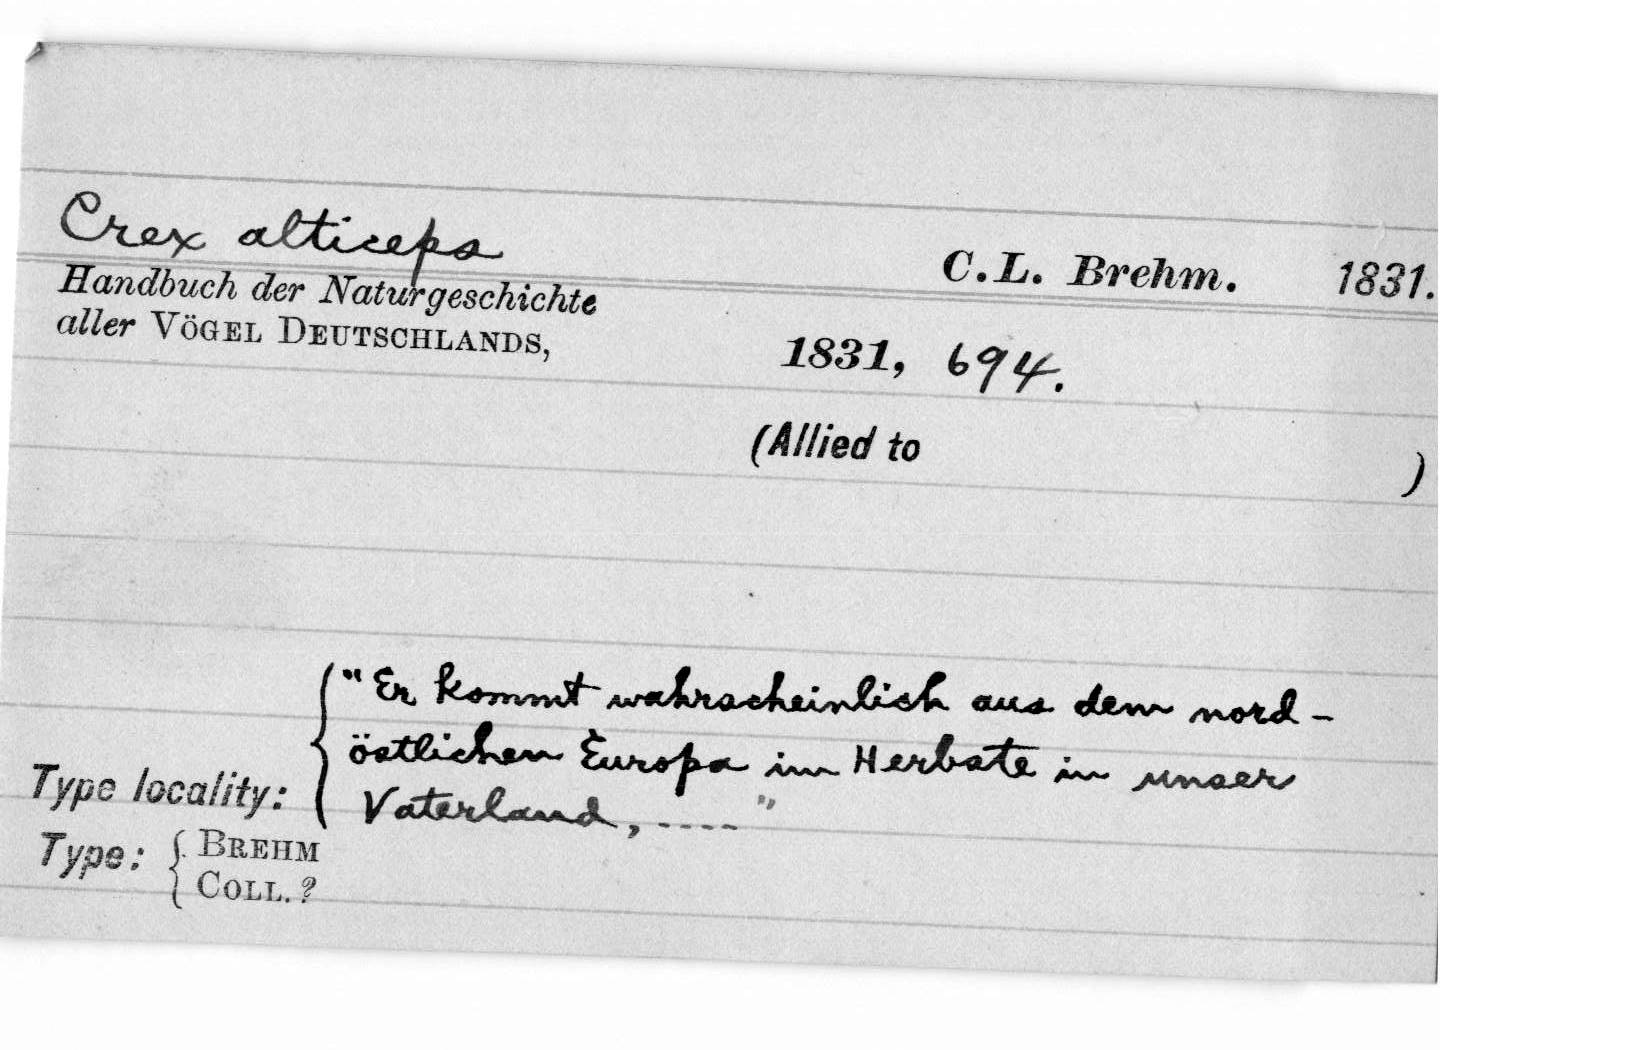 Crex alticeps
C.L. Brehm. 1831.
Handbuch der Naturgeschichte
aller VÖGEL DEUTSCHLANDS,
1831, 694.
(Allied to )
"Er kommt wahrscheinlich aus dem nord-
östlichen Europa im Herbste in unser
Type locality: Vaterland, ....."
Type: BREHM
COLL. ?